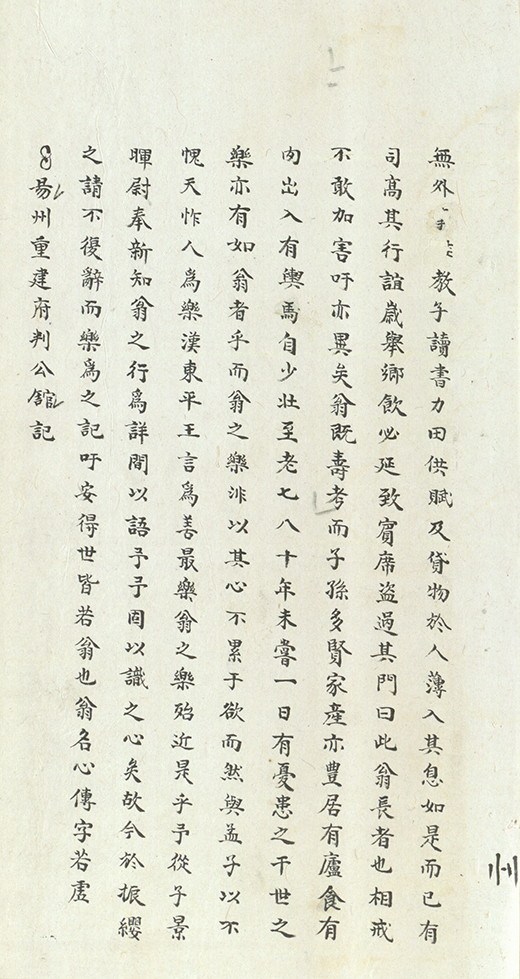 無外教子讀書力田供賦及貸物於人薄入其息如是而已有
司高其行誼歲舉鄉飲必延致賓席盜過其門曰此翁長者也相戒
不敢加害吁亦異矣翁既壽考而子孫多賢家產亦豐居有廬食有
肉出入有輿馬自少壯至老七八十年未嘗一日有憂患之干世之
樂亦有如翁者乎而翁之樂非以其心不累于欲而然與孟子以不
愧天怍人為樂漢東平王言為善最樂翁之樂殆近是乎予從子景
暉尉奉新知翁之行為詳間以語予予固以識之心矣故今於振纓
之請不復辭而樂為之記吁安得世皆若翁也翁名心傳字若虛
昜州重建府判公舘記